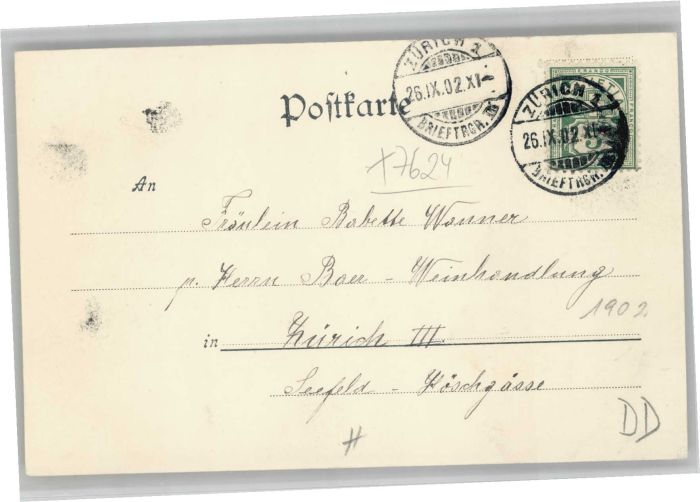 ZÜRICH 1
26.IX.02.XI
BRIEFTRGR.
ZÜRICH 1
26.IX.02.XI
BRIEFTRGR.
Postkarte
x7624
An
Fräulein Babette Wanner
p. Herrn Baer - Weinhandlung
1902.
in Zürich III.
Seefeld - Köschgässe
DD
#